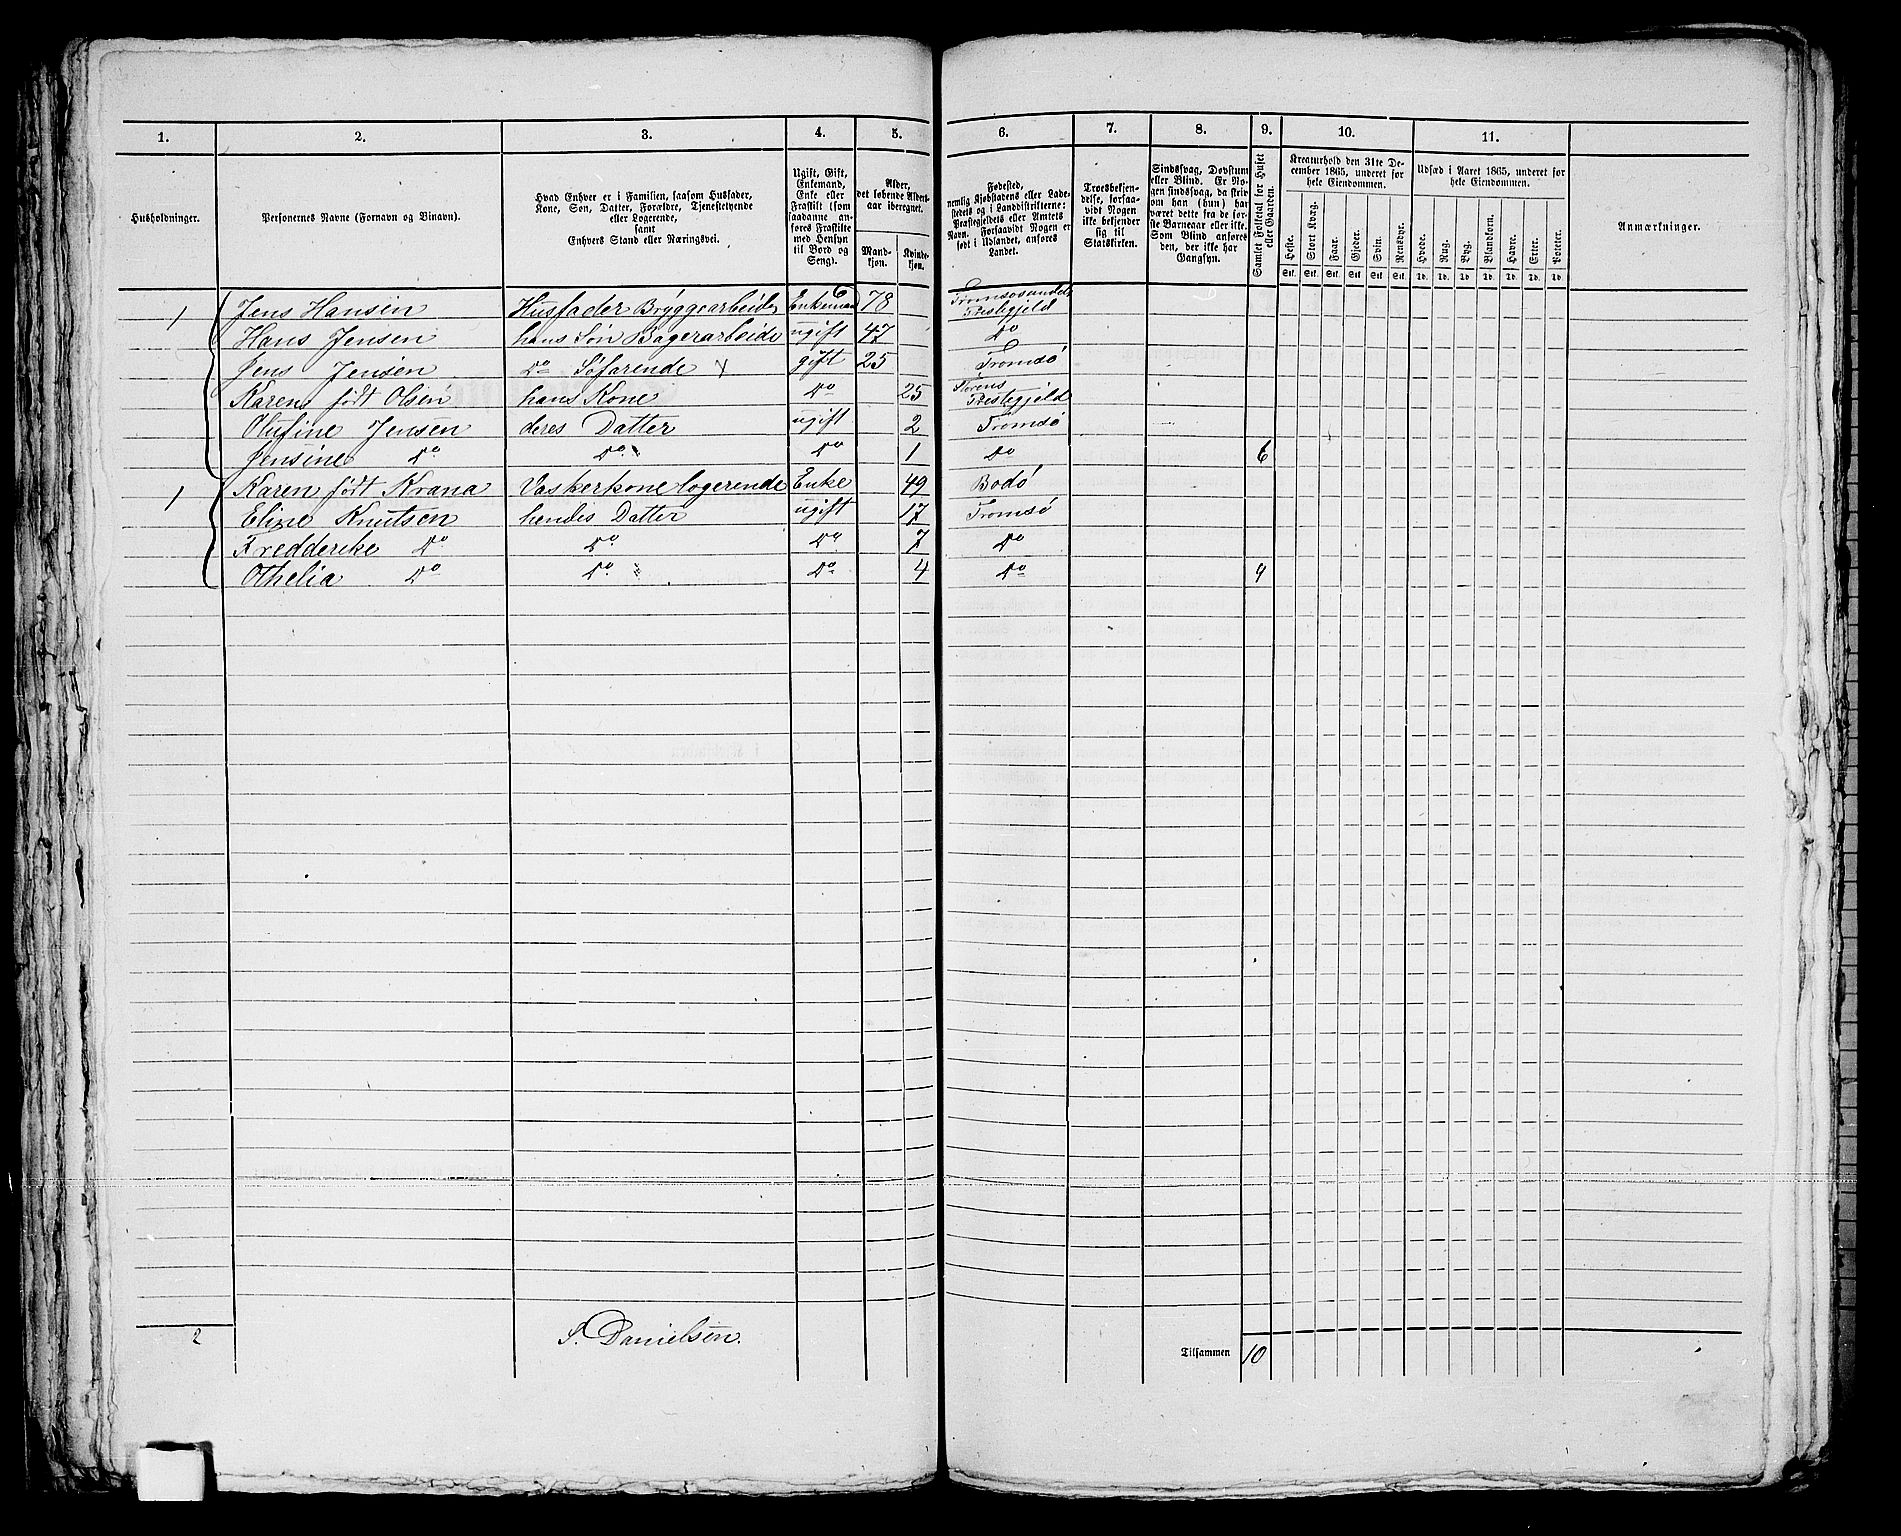 1. 2. 3. 4. 5. 6. 7. 8. 9. 10. 11.
Husholdninger.
Personernes Navne (Fornavn og Binavn).
Hvad Enhver er i Familien, saasom Husfader,
Kone, Søn, Datter, Forældre, Tjenestetyende
eller Logerende,
samt
Enhvers Stand eller Næringsvei.
Ugift, Gift,
Enkemand,
Enke eller
Fraskilt (som
saadanne an-
føres Fraskilte
med Hensyn
til Bord og
Seng).
Alder,
det løbende Alders-
aar iberegnet.
Mand-
kjøn.
Kvinde-
kjøn.
Fødested,
nemlig Kjøbstadens eller Lade-
stedets og i Landdistrikterne:
Præstegjeldets eller Amtets
Navn. Forsaavidt Nogen er
født i Udlandet, anføres
Landet.
Troesbekjen-
delse, forsaa-
vidt Nogen
ikke bekjender
sig til
Statskirken.
Sindssvag, Døvstum
eller Blind. Er No-
gen sindssvag, da skriv
om han (hun) har
været dette fra de før-
ste Barneaar eller ikke.
Som Blind anføres
den, der ikke har
Gangsyn.
Samlet Folketal for Huset
eller Gaarden.
Kreaturhold den 31te De-
cember 1865, underet for
hele Eiendommen.
Heste. Stort Kvæg. Faar. Gjeder. Svin. Rensdyr.
Stk. Stk. Stk. Stk. Stk. Stk.
Udsæd i Aaret 1865, underet for
hele Eiendommen.
Hvede. Rug. Byg. Blandkorn. Havre. Erter. Poteter.
Td. Td. Td. Td. Td. Td. Td.
Anmærkninger.
6
1 Jens Hansen Husfader Bryggearbeider Enkemand 78 Tromsøsundets Prestegjeld
Hans Jensen hans Søn Bagerarbeide ugift 47 Do
Jens Jensen Do Søfarende gift 25 Tromsø
Karen født Olsen hans Kone Do 25 Prestegjeld
Olufine Jensen deres Datter ugift 2 Tromsø
Jensine Do Do Do 1 Do 6
1 Karen født Krana Vaskerkone logerende Enke 49 Bodø
Eline Knutsen hendes Datter ugift 17 Tromsø
Fredderike Do Do Do 7 Do
Othelia Do Do Do 4 Do 4
2 S. Danielsen. Tilsammen 10